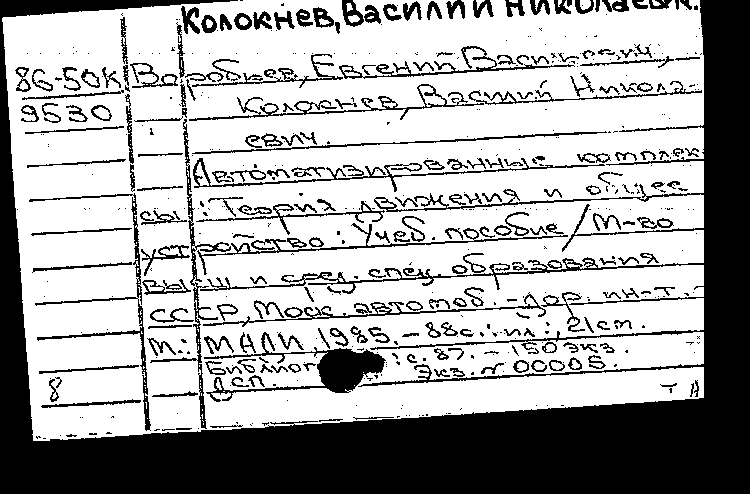 Колокнев, Василий Николаевич.
86-50К Воробьев, Евгений Васильевич,
9530 Колокнев, Василий Никола-
евич.
Автоматизированные комплек-
сы : Теория движения и общее
устройство : Учеб. пособие / М-во
высш и сред. спец. образования
СССР, Моск. автомоб.-дор. ин-т. -
М.: МАДИ, 1985. - 88с.: ил.; 21см.
Библиог : с. 87. - 150 экз.
Дсп. Экз. № 00005.
8
Т А